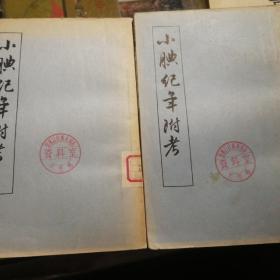 小腆纪年附考
小腆纪年附考
资料室
资料室